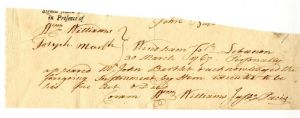 in Presence of
Wm Williams
Joseph Marsh
Windham ss Lebanon
30 March 1767 Personally
appeared Mr John Bartlet and acknowledged the
foregoing Instrument by Him executed to be
his free Act & Deed
Coram Wm Williams Just. Pacis